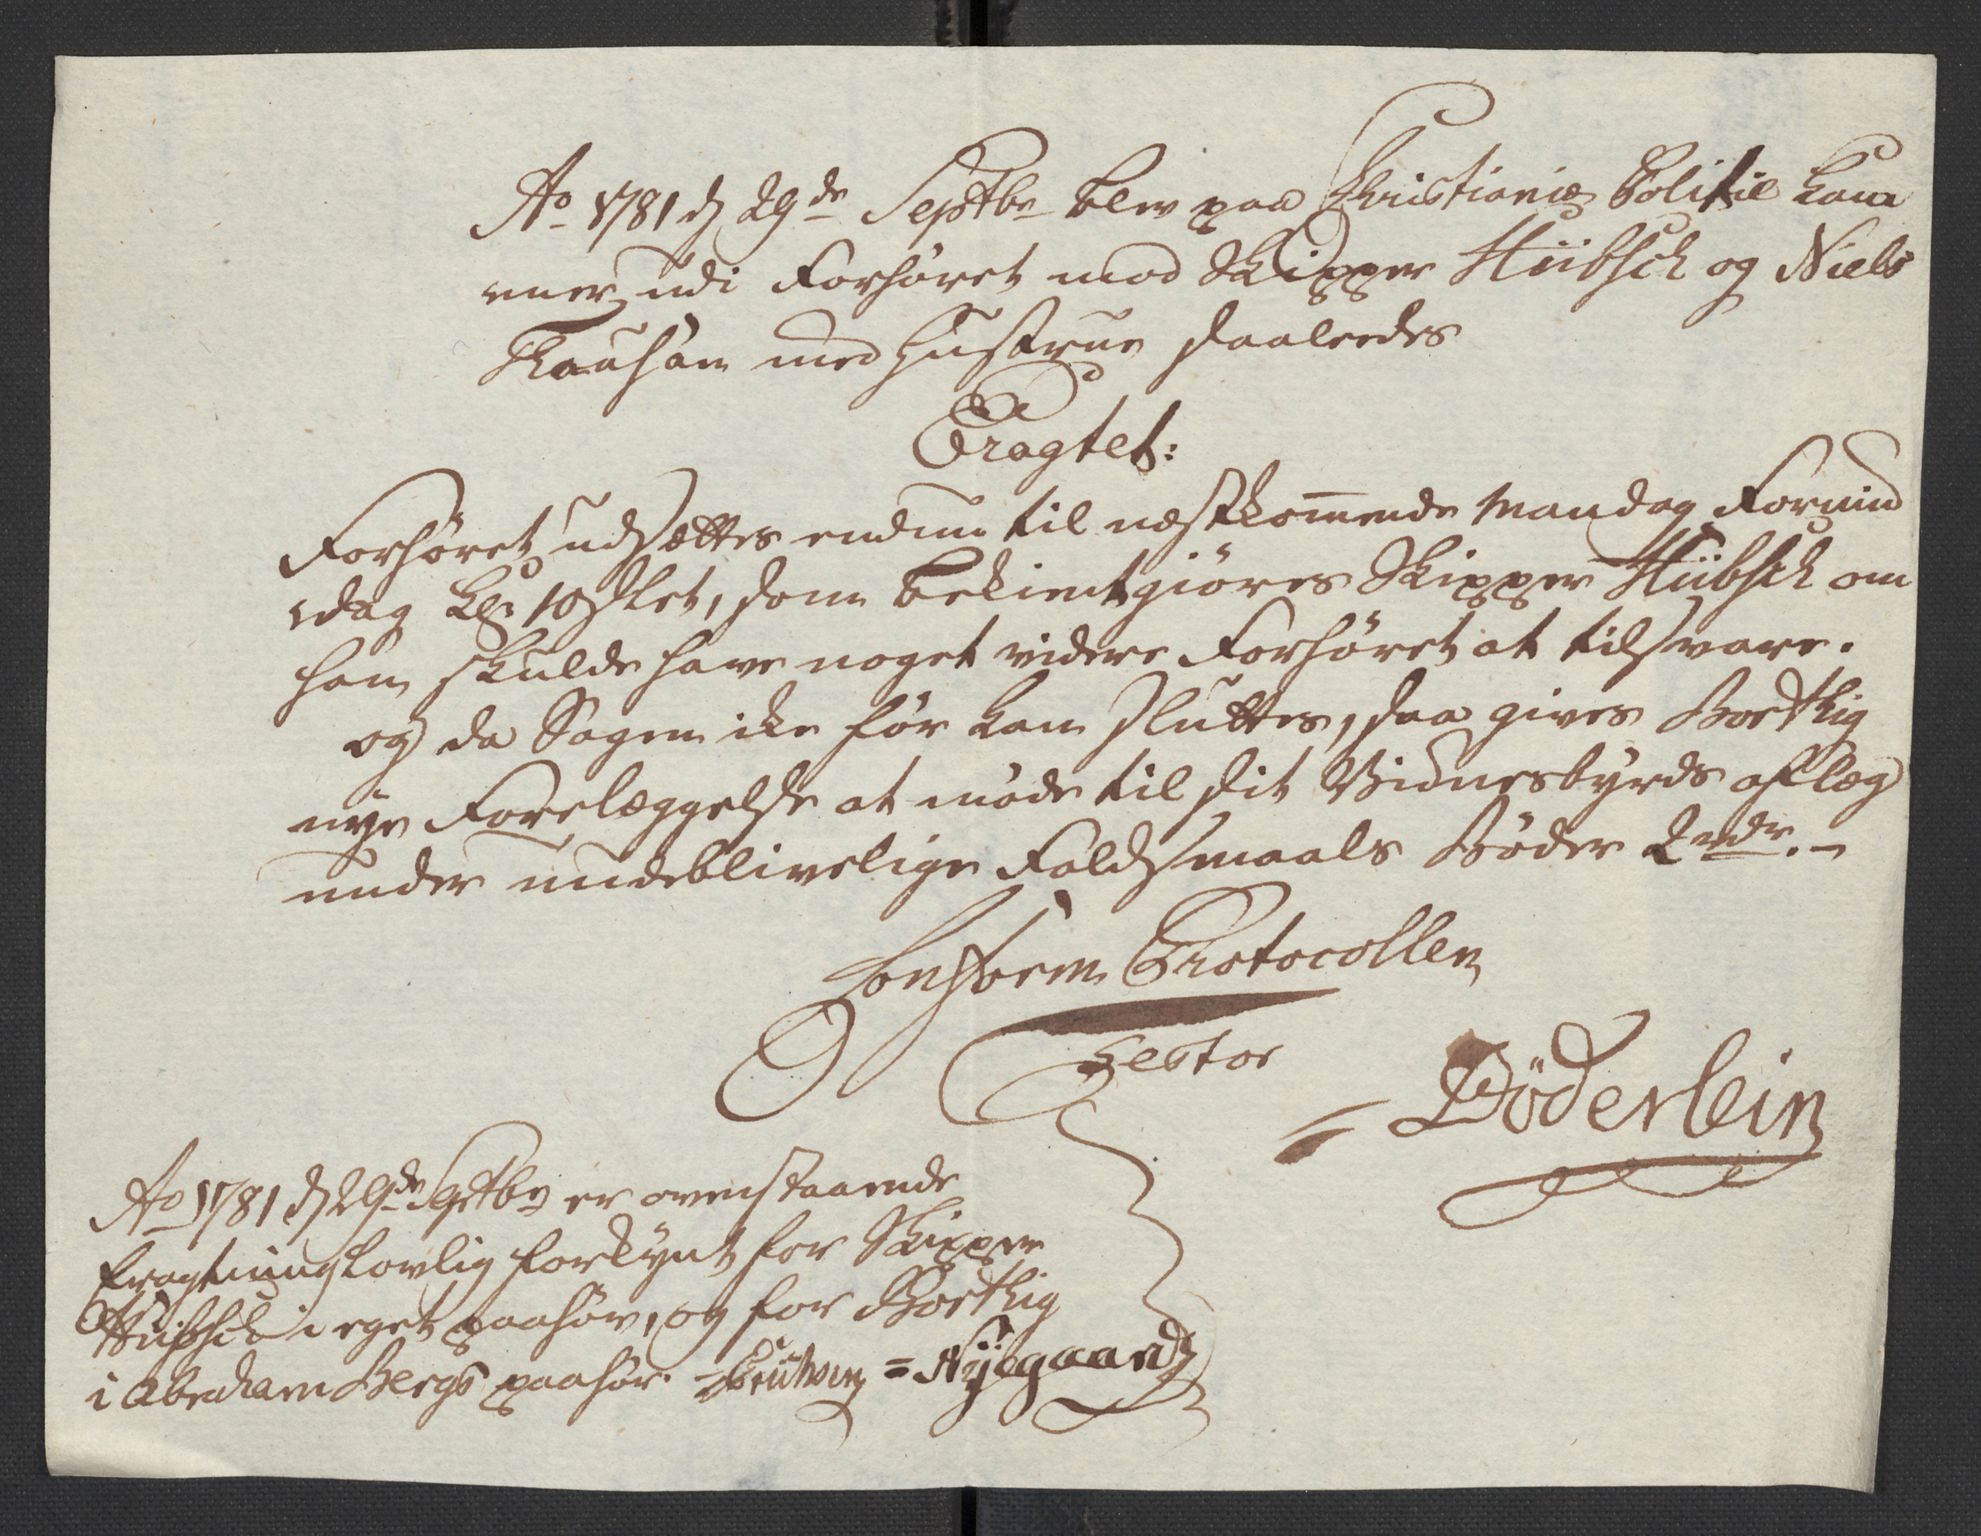 Ao 1781 d 29de Septbr blev paa Christianiæ Politie Kam
mer udi Forhøret mod Skipper Hübsch og Niels
med Hustrue saaleedes
Eragtet:
Forhøret udsættes endnu til næstkom̅ende Mandag Formid
dag Kl: 10 Slet, som bekientgiøres Skipper Hübsch om
han skulde have noget videre Forhøret at tilsvare.
og da Sagen ikke før kan sluttes, saa gives Boethig
nye Forelæggelse at møde til sit Vidnesbyrds aflæg
under uudeblivelige Faldsmaals Bøder 2 rdr. –
Conform Protocollen
testor
Döderlein
Ao 1781 d 29de Septbr er ovenstaaende
Eragtning lovlig forkynt for Skipper
Hübsch i eget paahør, og for Boethig
i Abraham Bergs paahør. = Nÿegaard